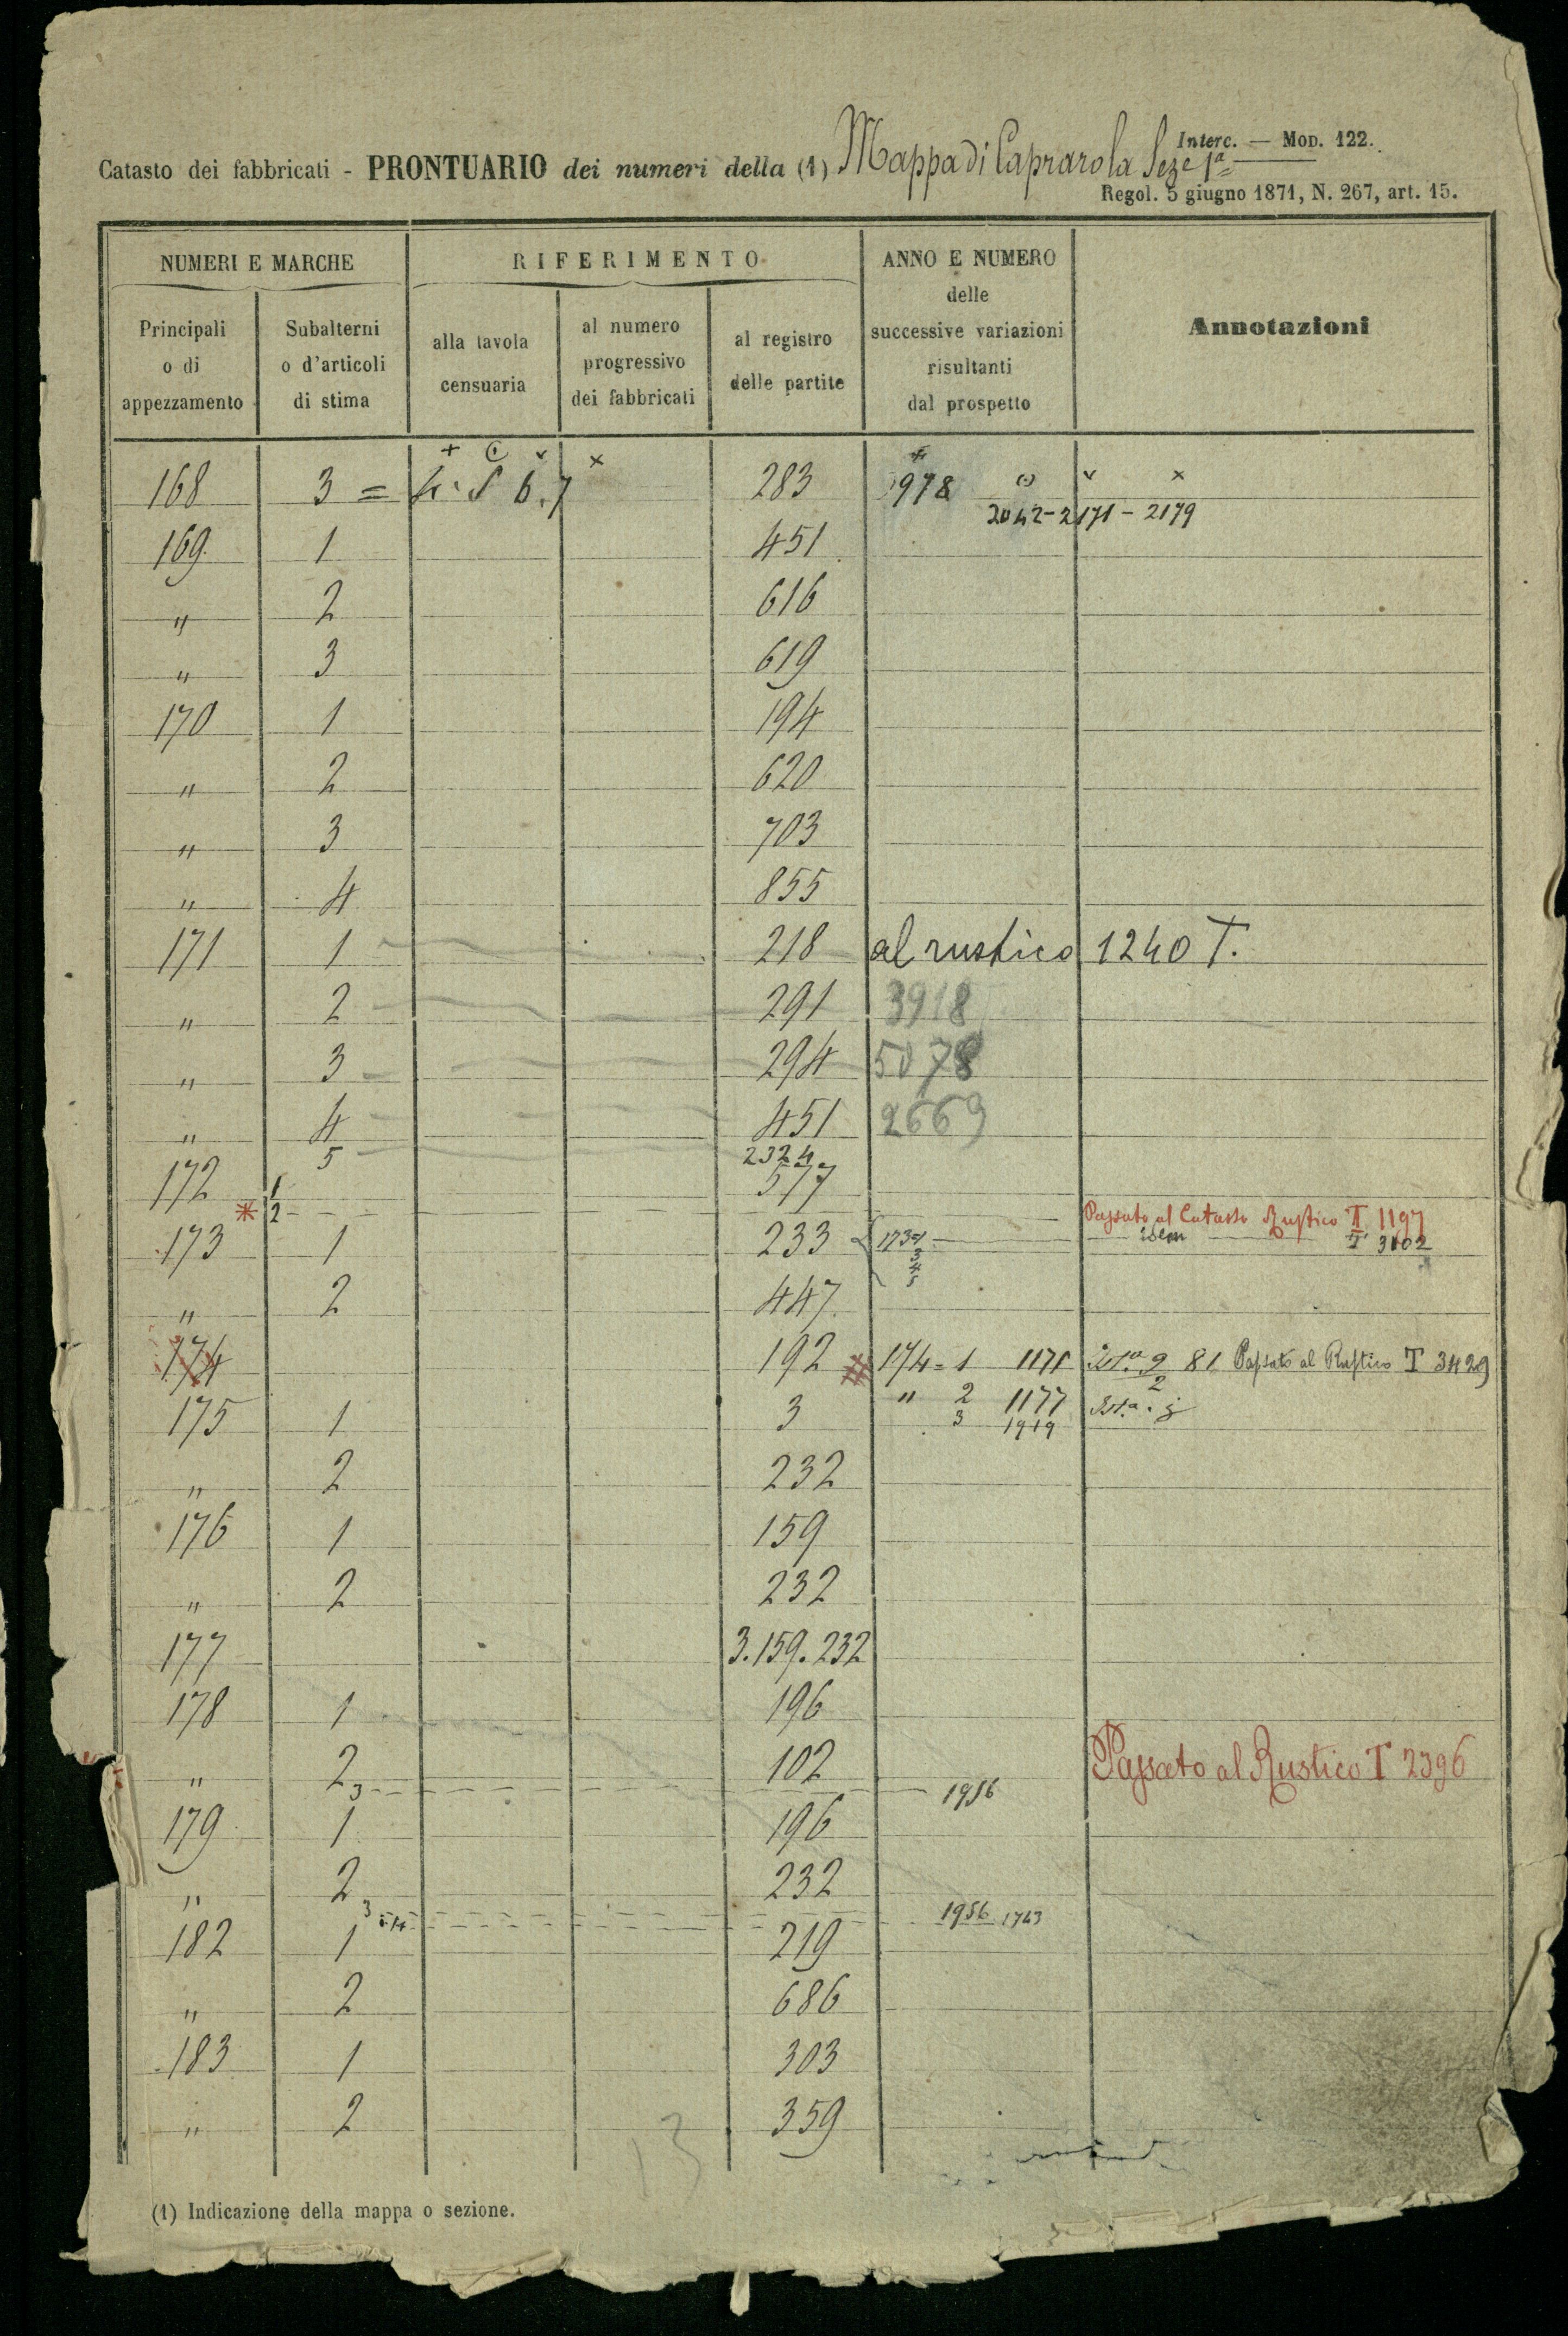 Interc. — Mod. 122.
Catasto dei fabbricati - PRONTUARIO dei numeri della (1) Mappa di Caprarola Seze 1ª
Regol. 5 giugno 1871, N. 267, art. 15.
NUMERI E MARCHE RIFERIMENTO ANNO E NUMERO delle successive variazioni risultanti dal prospetto Annotazioni
Principali o di appezzamento Subalterni o d'articoli di stima alla tavola censuaria al numero progressivo dei fabbricati al registro delle partite
168 3 = 4. 5 6. 7 283 978
2042 - 2171 - 2179
169 1 451
" 2 616
" 3 619
170 1 194
" 2 620
" 3 703
" 4 855
171 1 218 al rustico 1240 T.
" 2 291 3918
" 3 294 5078
" 4 451 2669
5 2324
172 1 577
2 Passato al Catasto Rustico T 1197
173 1 233 173
idem T 3102
3
4
5
" 2 447
174 192 174 = 1 1171 81 Passato al Rustico T 3429
" 2 1177
175 1 3
3 1919
" 2 232
176 1 159
" 2 232
177 3.159.232
178 1 196
" 2 102 Passato al Rustico T 2396
3 1956
179 1 196
" 2 232
3 4 1956 1743
182 1 219
" 2 686
183 1 303
" 2 359
13
(1) Indicazione della mappa o sezione.